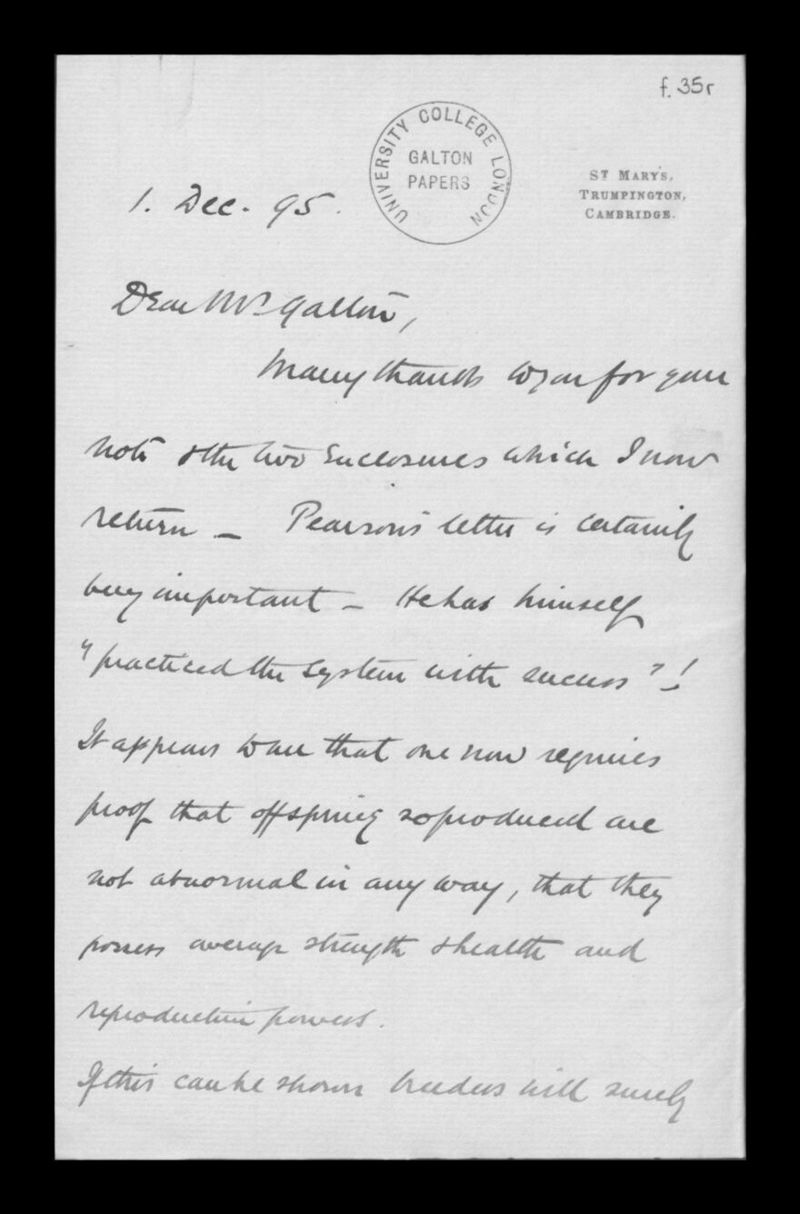 f. 35r
UNIVERSITY COLLEGE LONDON
GALTON
PAPERS
ST MARY'S,
TRUMPINGTON,
CAMBRIDGE.
1. Dec. 95.
Dear Mr Galton,
Many thanks to you for your
note & the two Enclosures which I now
return — Pearson's letter is certainly
very important — He has himself
"practiced the system with success"!
It appears to me that one now requires
proof that offspring so produced are
not abnormal in any way, that they
possess average strength & health and
reproductive powers.
If this can be shown breeders will surely